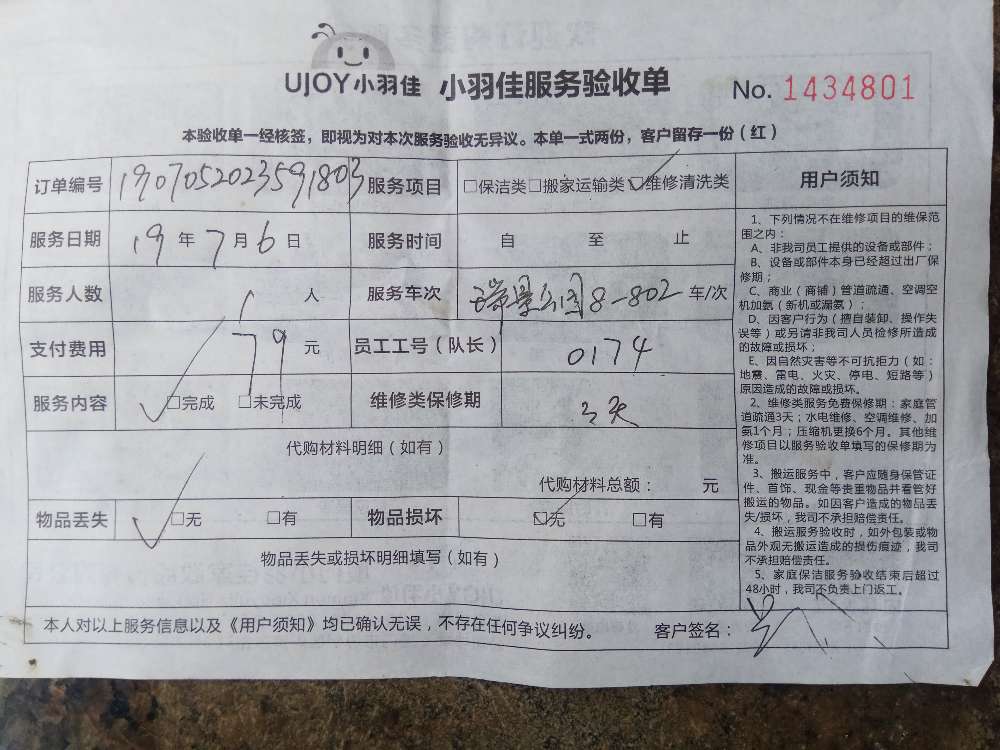 UJOY小羽佳 小羽佳服务验收单 No. 1434801
本验收单一经核签，即视为对本次服务验收无异议。本单一式两份，客户留存一份（红）
订单编号 190705202359​1803 服务项目 □保洁类□搬家运输类□维修清洗类
服务日期 19 年 7 月 6 日 服务时间 自 至 止
服务人数 1 人 服务车次 瑞景公园8-802 车/次
支付费用 79 元 员工工号（队长） 0174
服务内容 □完成 □未完成 维修类保修期 3天
代购材料明细（如有）
代购材料总额： 元
物品丢失 □无 □有 物品损坏 □无 □有
物品丢失或损坏明细填写（如有）
用户须知
1、下列情况不在维修项目的维保范
围之内：
A、非我司员工提供的设备或部件；
B、设备或部件本身已经超过出厂保
修期；
C、商业（商铺）管道疏通、空调空
机加氨（新机或漏氨）；
D、因客户行为（擅自装卸、操作失
误等）或另请非我司人员检修所造成
的故障或损坏；
E、因自然灾害等不可抗拒力（如：
地震、雷电、火灾、停电、短路等）
原因造成的故障或损坏。
2、维修类服务免费保修期：家庭管
道疏通3天；水电维修、空调维修、加
氨1个月；压缩机更换6个月。其他维
修项目以服务验收单填写的保修期为
准。
3、搬运服务中，客户应随身保管证
件、首饰、现金等贵重物品并看管好
搬运的物品。如因客户造成的物品丢
失/损坏，我司不承担赔偿责任。
4、搬运服务验收时，如外包装或物
品外观无搬运造成的损伤痕迹，我司
不承担赔偿责任。
5、家庭保洁服务验收结束后超过
48小时，我司不负责上门返工。
本人对以上服务信息以及《用户须知》均已确认无误，不存在任何争议纠纷。 客户签名：